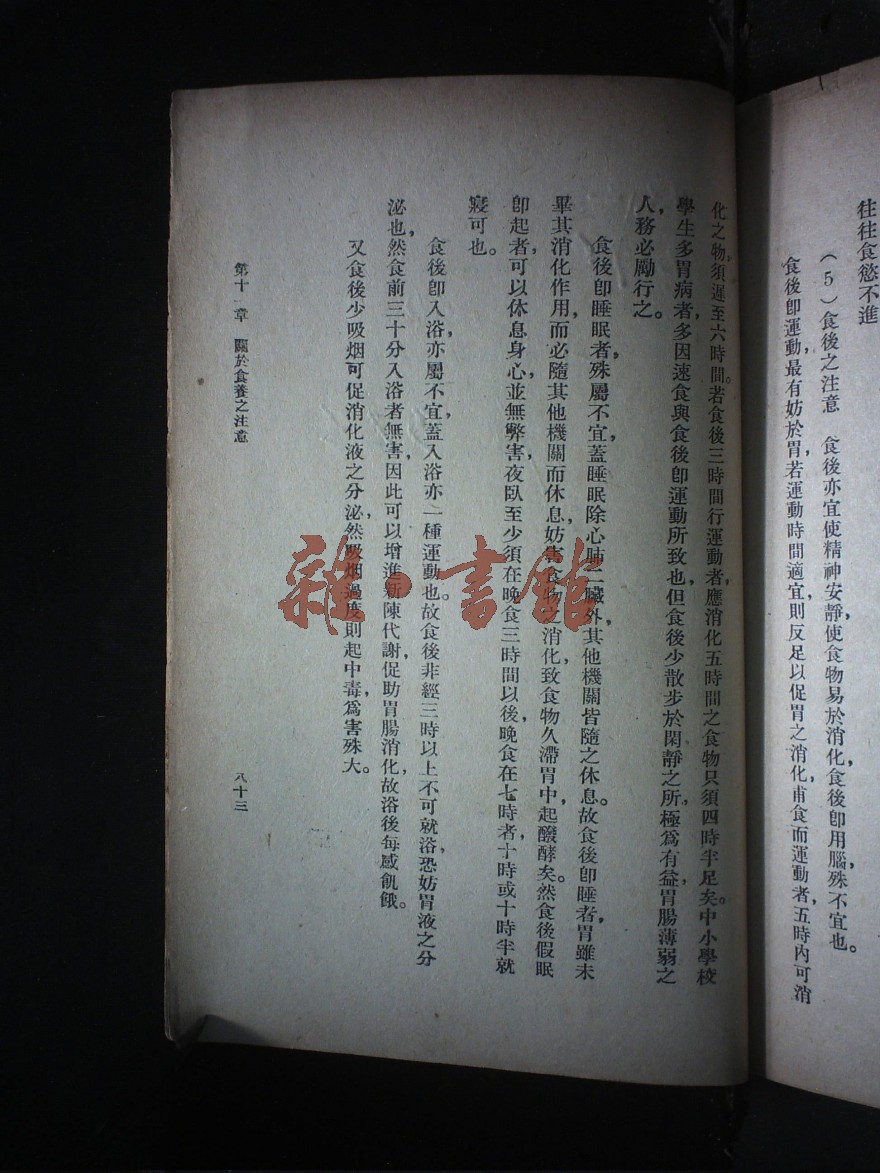 往往食慾不進
（5）食後之注意　食後亦宜使精神安靜，使食物易於消化，食後卽用腦，殊不宜也。
食後卽運動，最有妨於胃，若運動時間適宜，則反足以促胃之消化，甫食而運動者，五時內可消
化之物，須遲至六時間。若食後三時間行運動者，應消化五時間之食物，只須四時半足矣。中小學校
學生多胃病者，多因速食與食後卽運動所致也，但食後少散步於閑靜之所，極爲有益，胃腸薄弱之
人，務必勵行之。
食後卽睡眠者，殊屬不宜，蓋睡眠除心肺二臟外，其他機關皆隨之休息。故食後卽睡者，胃雖未
畢其消化作用，而必隨其他機關而休息，妨害食物之消化，致食物久滯胃中，起醱酵矣。然食後假眠
卽起者，可以休息身心，並無弊害，夜臥至少須在晚食三時間以後，晚食在七時者，十時或十時半就
寢可也。
食後卽入浴，亦屬不宜，蓋入浴亦一種運動也。故食後非經三時以上，不可就浴，恐妨胃液之分
泌也，然食前三十分入浴者無害，因此可以增進新陳代謝，促助胃腸消化，故浴後每感飢餓。
又食後少吸烟，可促消化液之分泌，然吸烟過度，則起中毒，爲害殊大。
第十一章　關於食養之注意
八十三
雜·書館